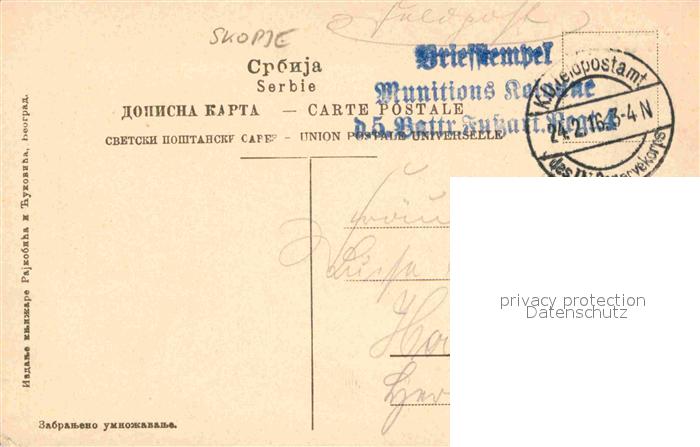 SKOPJE
Feldpost
Србија
Serbie
ДОПИСНА КАРТА — CARTE POSTALE
СВЕТСКИ ПОШТАНСКИ САВЕЗ - UNION POSTALE UNIVERSELLE
Briefstempel
Munitions Kolonne
d. 5. Battr. Fußart. Regt. 4
K.D. Feldpostamt
24.2.16. 3-4 N
des IV. Reservekorps
Издање књижаре Рајковића и Ћуковића, Београд.
Luise
privacy protection
Datenschutz
Забрањено умножавање.